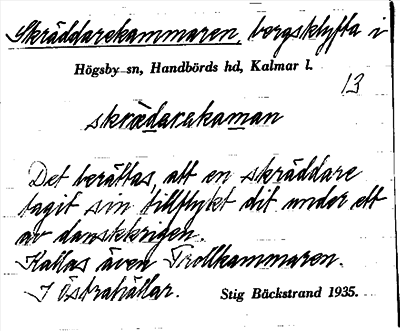 Skräddarekammaren, bergsklyfta i
Högsby sn, Handbörds hd, Kalmar l.
13
skrædarakaman
Det berättas, att en skräddare
tagit sin tillflykt dit under ett
av danskkrigen.
Kallas även Trollkammaren.
I Östrahällar.
Stig Bäckstrand 1935.